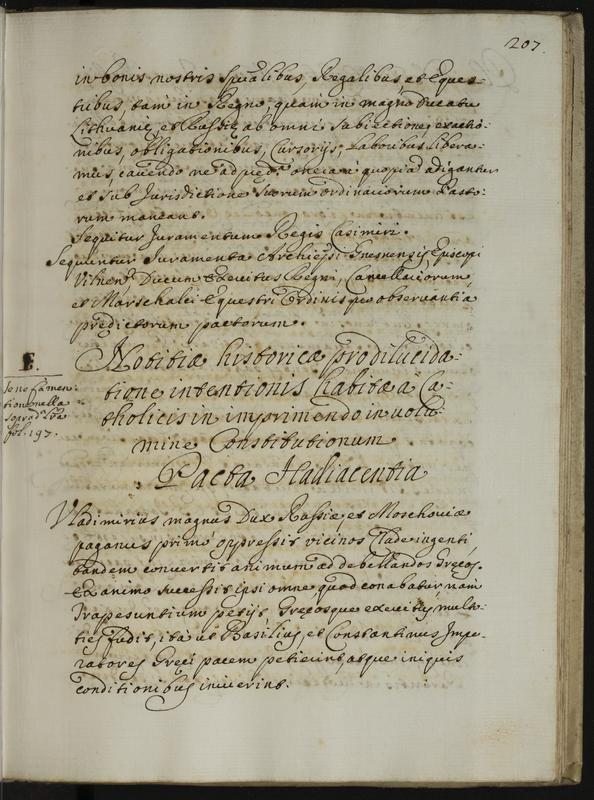 207.
in bonis nostris spũalibus, Regalibus et Eques-
tribus, tam in Regno, quam in magno Ducatu
Lithuanię, et Russię ab omni subiectione, exactio-
nibus, obligationibus, laboribus libera-
mus, cavendo ne ad quopiã adigantur
et sub Jurisdictione suorum ordinariorum Pasto-
rum maneant.
Sequitur Juramentum Regis Casimiri.
Sequuntur Juramenta Archiepĩ Gnesnensis, Episcopi
Vilnen: Ducum Exercitus Regni, Cancellariorum,
et Marschalci Equestris Ordinis pro observantia
prędictorum pactorum.
E.
se ne fà men-
tione nella
soprad.ª
fol. 197.
Notitiæ historicæ pro dilucida-
tione intentionis habitæ à Ca-
tholicis in imprimendo in volu-
mine Constitutionum
Pacta Hadiacentia
Vladimirius magnus Dux Russiæ, et Moschoviæ
paganus primò oppressit vicinos clade ingenti
tandem convertit animum ad debellandos Gręcos.
Ex animo successit ipsi omne quod conebatur, nam
Trapesuntium petijt Gręcosque exercitus mul-
ties fudit, ità ut Basilius et Constantinus Impe-
ratores Gręci pacem petierint atque iniquis
conditionibus inierint.